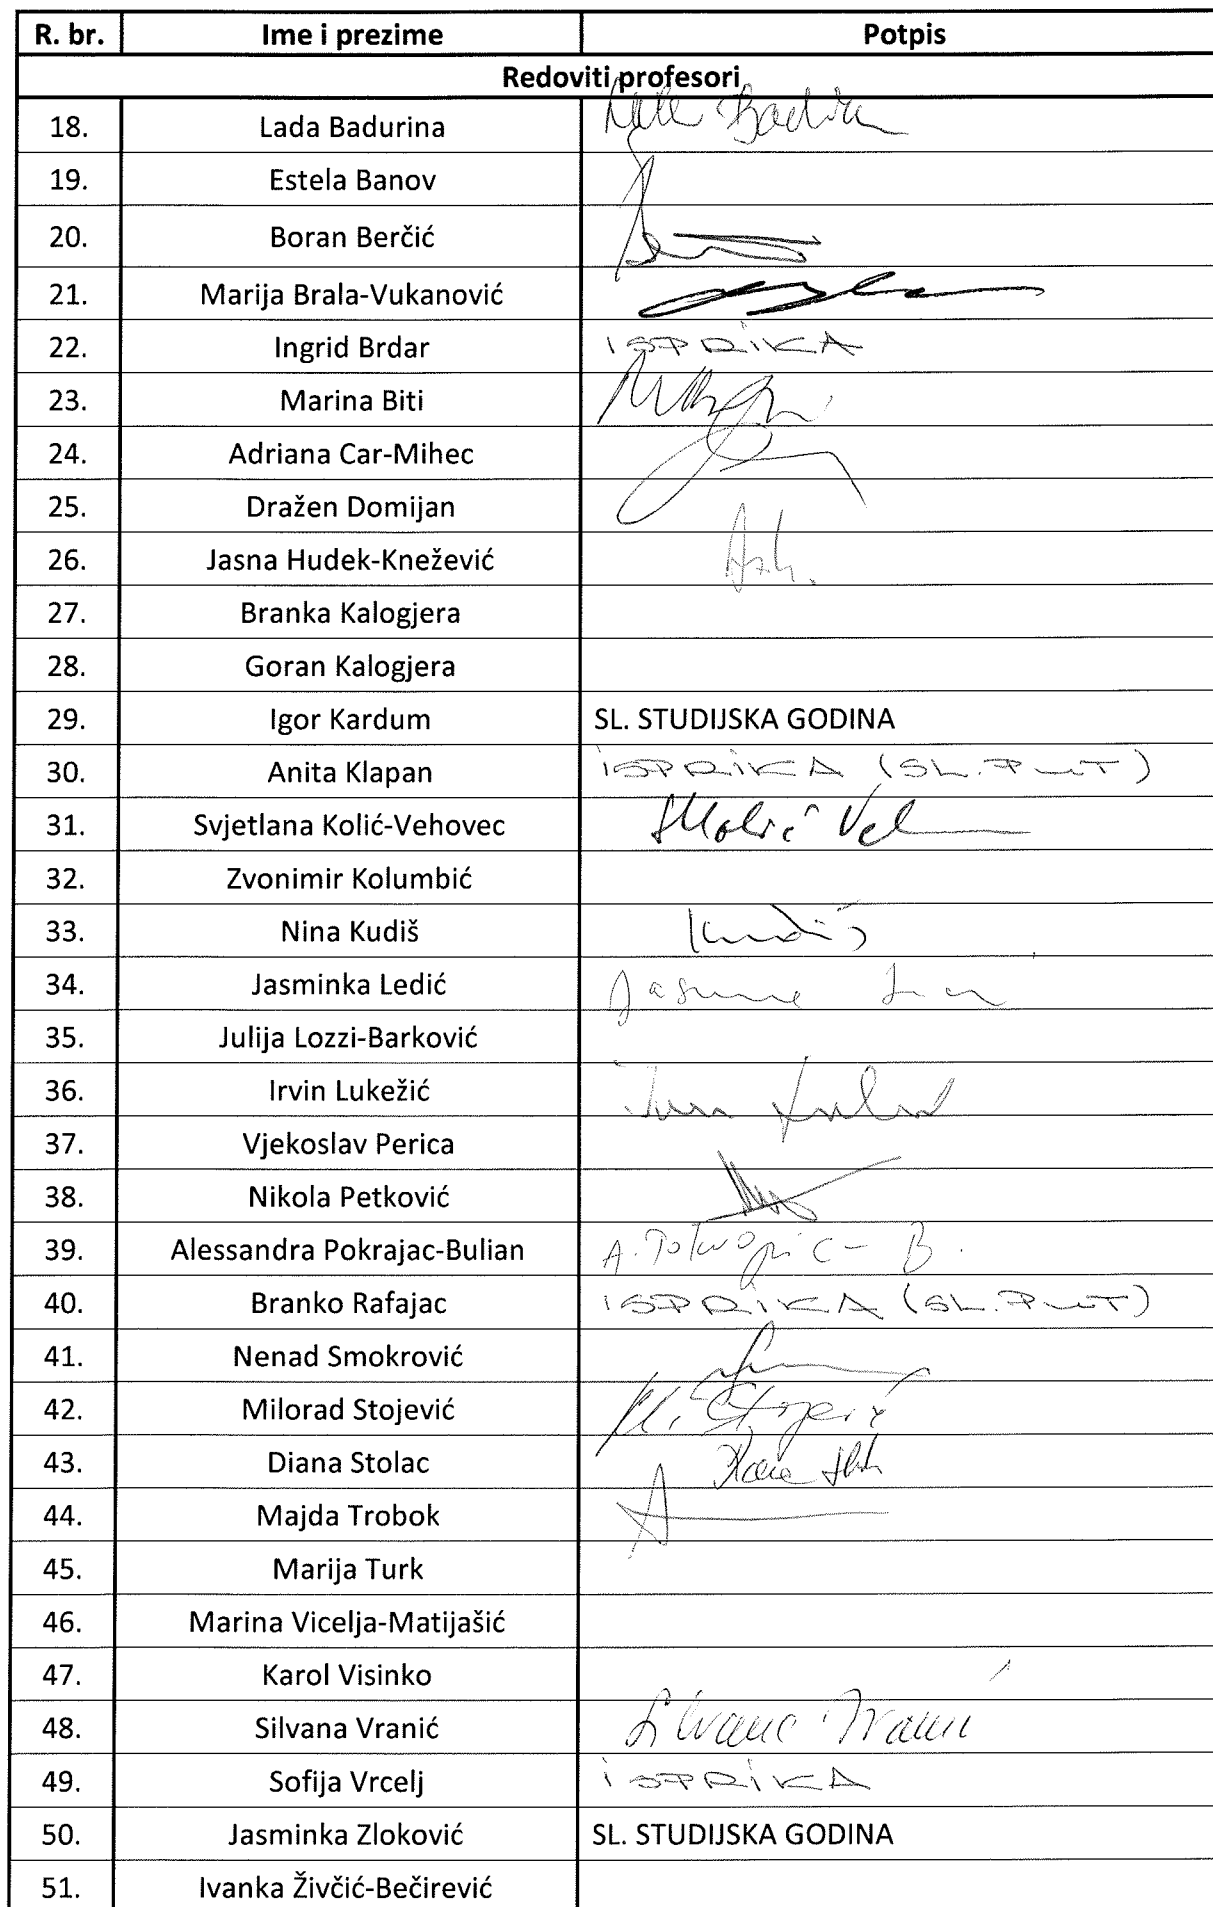 R. br. Ime i prezime Potpis
Redoviti profesori
18. Lada Badurina
19. Estela Banov
20. Boran Berčić
21. Marija Brala-Vukanović
22. Ingrid Brdar ISPRIKA
23. Marina Biti
24. Adriana Car-Mihec
25. Dražen Domijan
26. Jasna Hudek-Knežević
27. Branka Kalogjera
28. Goran Kalogjera
29. Igor Kardum SL. STUDIJSKA GODINA
30. Anita Klapan ISPRIKA (SL. PUT)
31. Svjetlana Kolić-Vehovec
32. Zvonimir Kolumbić
33. Nina Kudiš Kudiš
34. Jasminka Ledić
35. Julija Lozzi-Barković
36. Irvin Lukežić
37. Vjekoslav Perica
38. Nikola Petković
39. Alessandra Pokrajac-Bulian
40. Branko Rafajac ISPRIKA (SL. PUT)
41. Nenad Smokrović
42. Milorad Stojević M. Stojević
43. Diana Stolac
44. Majda Trobok
45. Marija Turk
46. Marina Vicelja-Matijašić
47. Karol Visinko
48. Silvana Vranić Silvana Vranić
49. Sofija Vrcelj ISPRIKA
50. Jasminka Zloković SL. STUDIJSKA GODINA
51. Ivanka Živčić-Bečirević